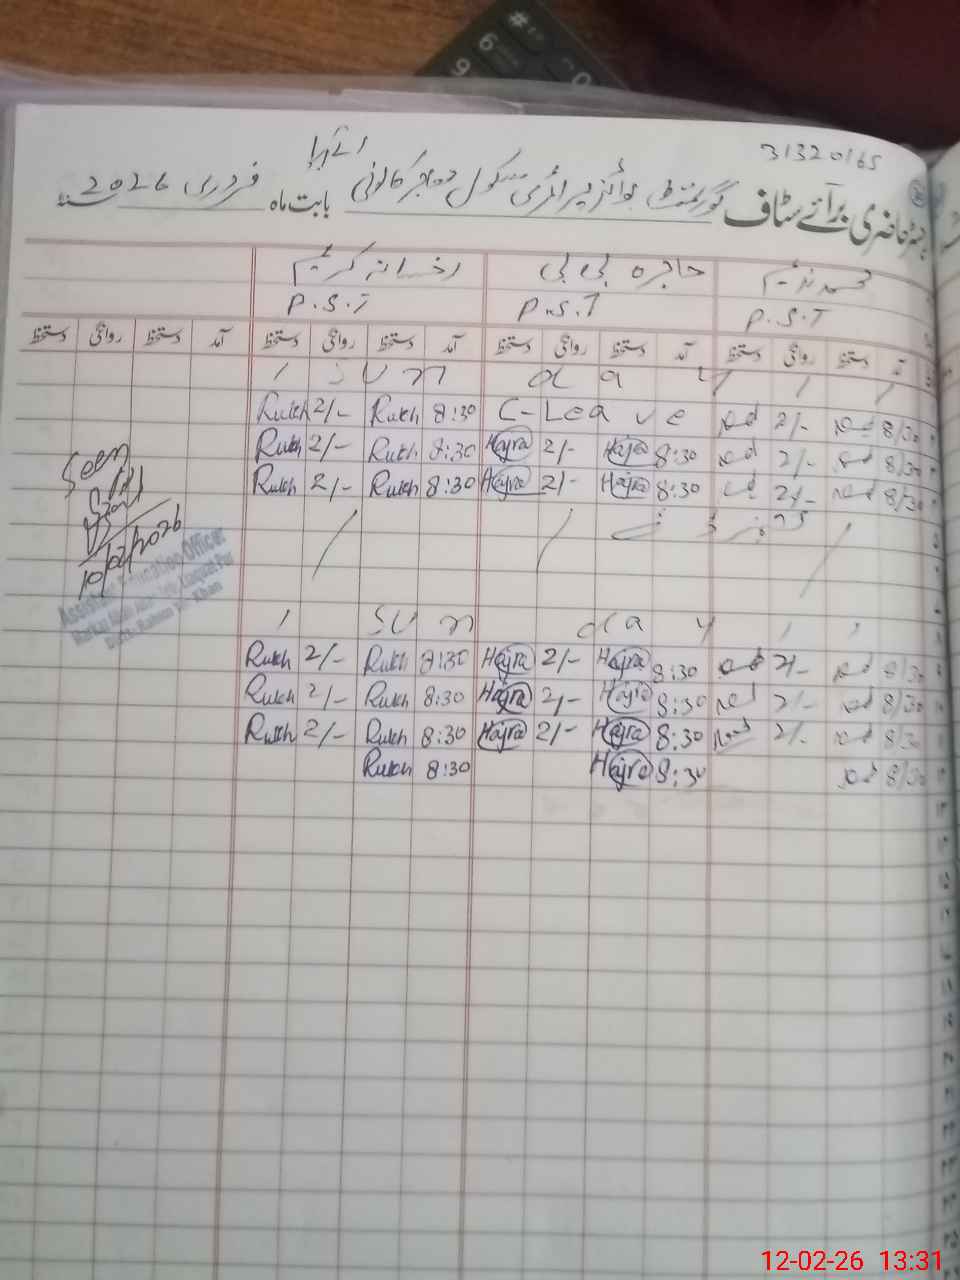 31320165
رجسٹر حاضری برائے سٹاف گورنمنٹ بوائز پرائمری سکول مہاجر کالونی بابت ماہ فروری 2026
محمد ندیم حاجرہ بی بی رخسانہ کریم
P.S.T P.S.T P.S.T
آمد دستخط روانگی دستخط آمد دستخط روانگی دستخط آمد دستخط روانگی دستخط آمد دستخط روانگی دستخط
Sunday
Rukh 2/- Rukh 8:30 C-Leave 2/- 8/30
Rukh 2/- Rukh 8:30 Hajra 2/- Hajra 8:30 2/- 8/30
Rukh 2/- Rukh 8:30 Hajra 2/- Hajra 8:30 2/- 8/30
Seen
10/02/2026
Assistant Education Officer
Sunday
Rukh 2/- Rukh 8:30 Hajra 2/- Hajra 8:30 2/- 8/30
Rukh 2/- Rukh 8:30 Hajra 2/- Hajra 8:30 2/- 8/30
Rukh 2/- Rukh 8:30 Hajra 2/- Hajra 8:30 2/- 8/30
Rukh 8:30 Hajra 8:30 8/30
12-02-26 13:31